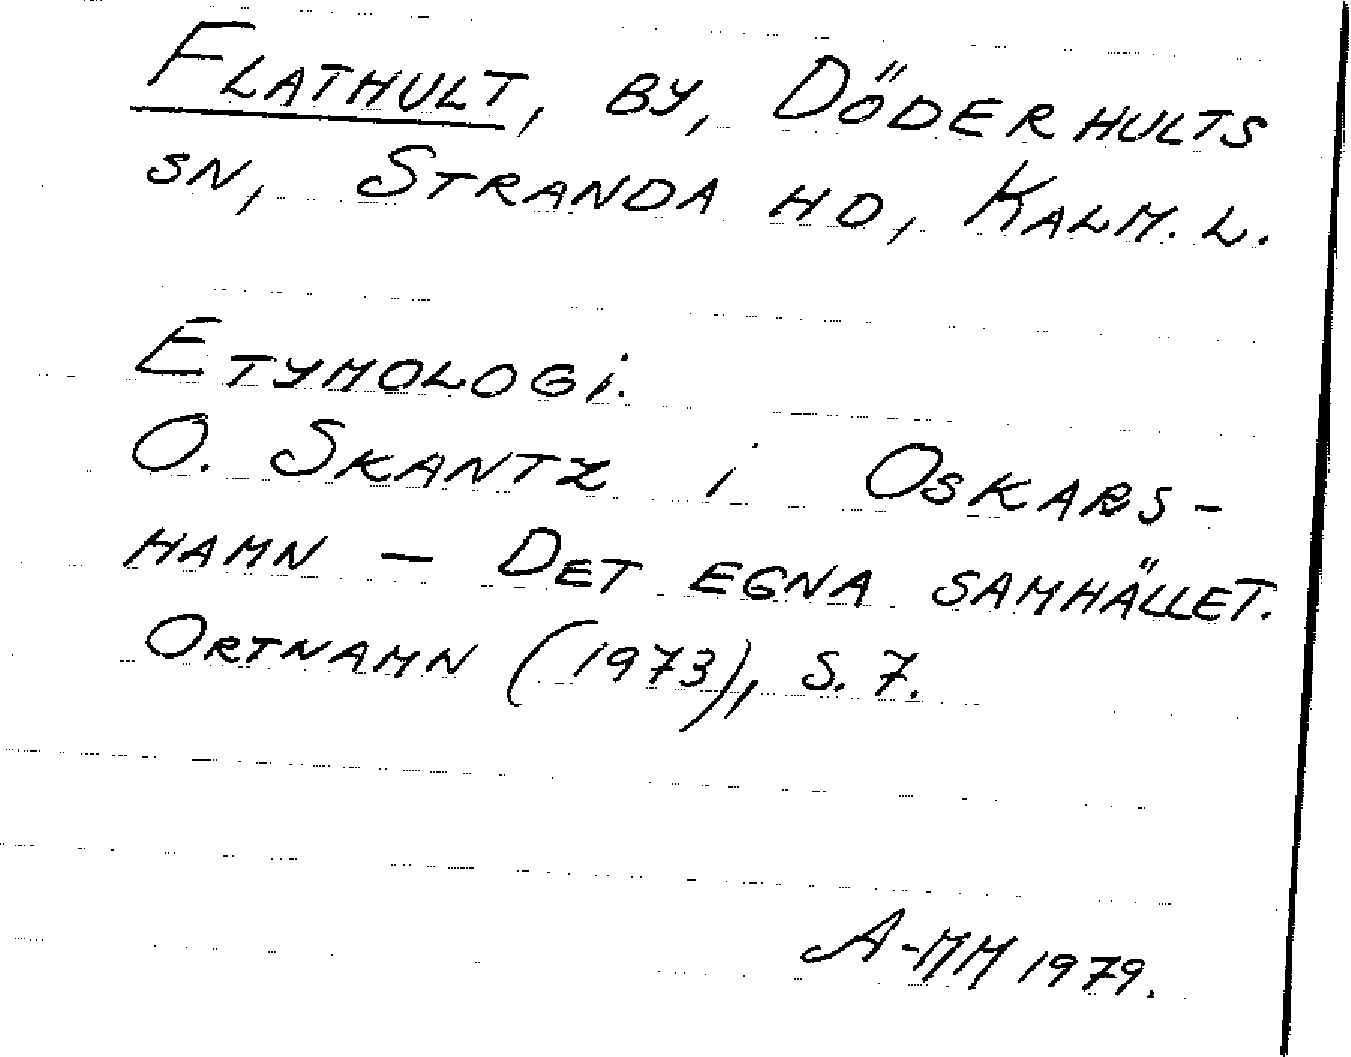 FLATHULT, BY, DÖDERHULTS
SN, STRANDA HD, KALM. L.
ETYMOLOGI.
O. SKANTZ i OSKARS-
HAMN — DET EGNA SAMHÄLLET.
ORTNAMN (1973), S. 7.
A-MM 1979.